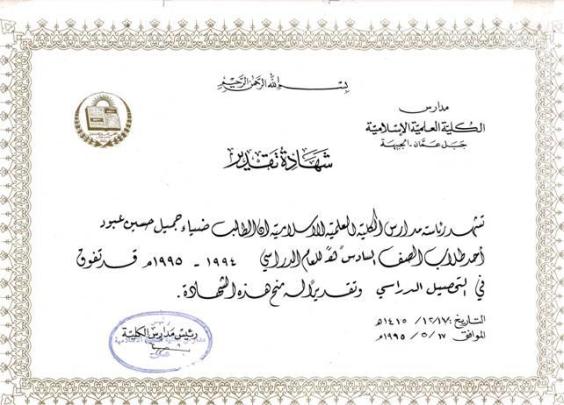 بسم الله الرحمن الرحيم
مدارس
الكلية العلمية الإسلامية
جبل عمّان - الجبيهة
شهادة تقدير
تشهد رئاسة مدارس الكلية العلمية الاسلامية ان الطالب ضياء جميل حسين عبود
أحد طلاب الصف السادس للعام الدراسي ١٩٩٤ - ١٩٩٥م قد تفوق
في التحصيل الدراسي وتقديراً له منح هذه الشهادة.
التاريخ: ١٤١٥/١٢/١٧هـ
الموافق ١٩٩٥/٥/١٧م
رئيس مدارس الكلية